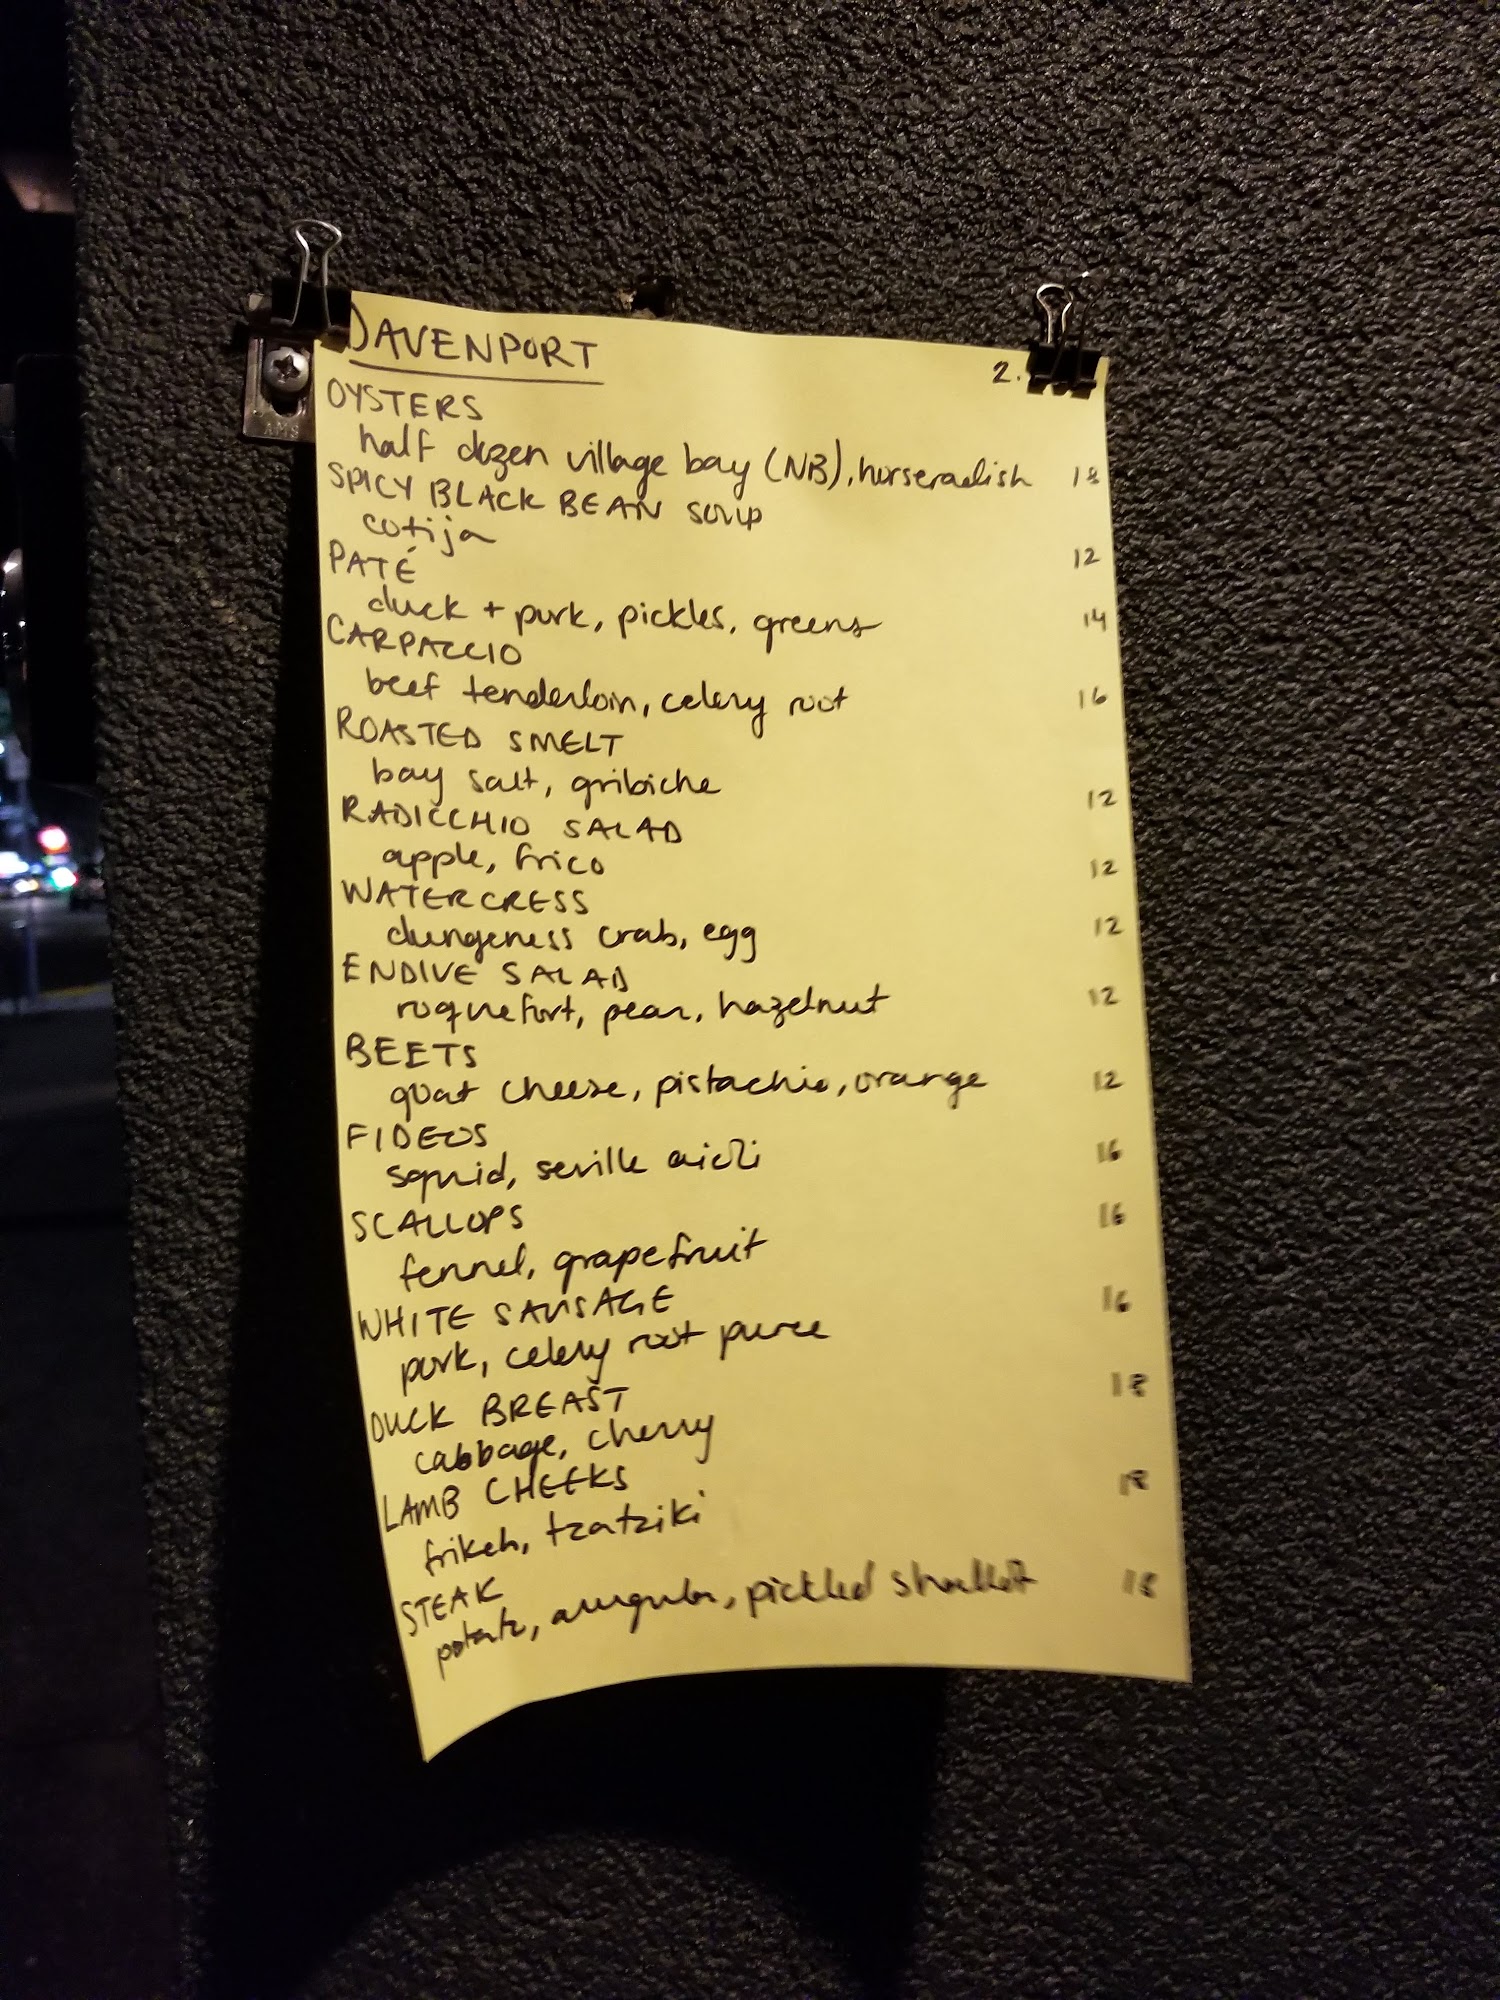 DAVENPORT 2.
OYSTERS
half dozen village bay (NB), horseradish 18
SPICY BLACK BEAN SOUP
cotija 12
PATÉ
duck + pork, pickles, greens 14
CARPACCIO
beef tenderloin, celery root 16
ROASTED SMELT
bay salt, gribiche 12
RADICCHIO SALAD
apple, frico 12
WATERCRESS
dungeness crab, egg 12
ENDIVE SALAD
roquefort, pear, hazelnut 12
BEETS
goat cheese, pistachio, orange 12
FIDEOS
squid, seville aioli 16
SCALLOPS 16
fennel, grapefruit
WHITE SAUSAGE 16
pork, celery root puree
DUCK BREAST 18
cabbage, cherry
LAMB CHEEKS 18
frikeh, tzatziki
STEAK
potato, arugula, pickled shallot 18
AMS